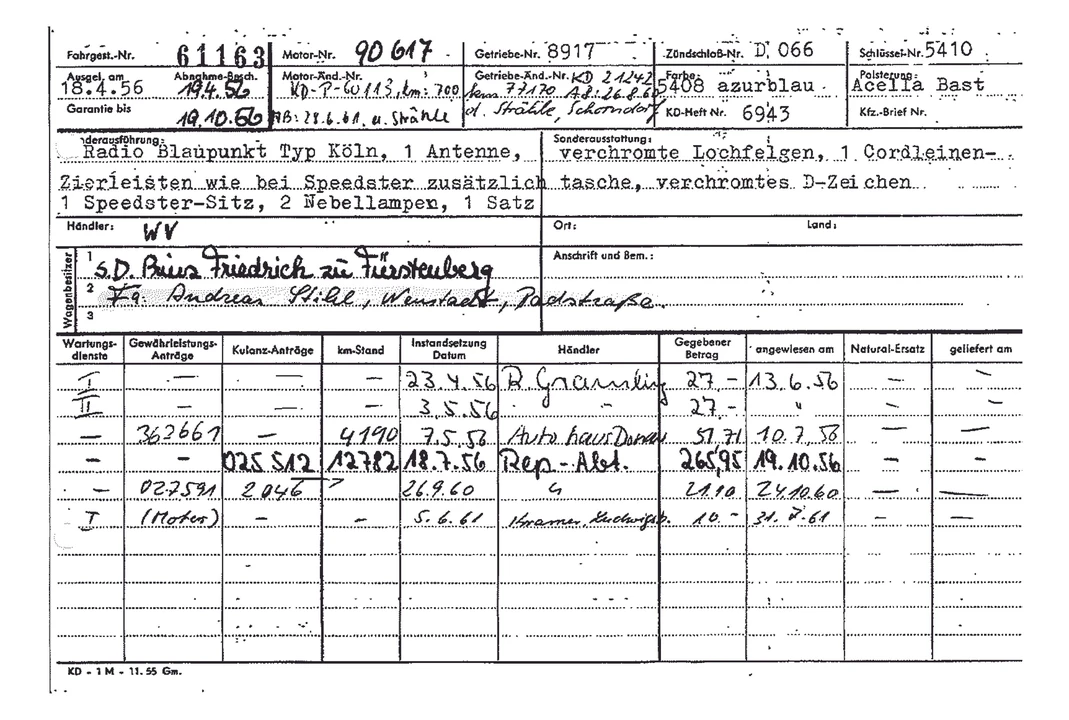 Fahrgest.-Nr. 61163 Motor-Nr. 90617 Getriebe-Nr. 8917 Zündschloß-Nr. D 066 Schlüssel-Nr. 5410
Ausgel. am Abnahme-Besch. Motor-Änd.-Nr. Getriebe-Änd.-Nr. KD 21242 Farbe: Polsterung:
18.4.56 19.4.56 KD-P-60113, km: 700 77170 AB: 26.8.60 5408 azurblau Acella Bast
Garantie bis 19.10.56 AB: 28.6.61, u. Strähle d. Strähle, Schorndorf KD-Heft Nr. 6943 Kfz.-Brief Nr.
nderausführung: Sonderausstattung:
Radio Blaupunkt Typ Köln, 1 Antenne, verchromte Lochfelgen, 1 Cordleinen-
Zierleisten wie bei Speedster zusätzlich tasche, verchromtes D-Zeichen
1 Speedster-Sitz, 2 Nebellampen, 1 Satz
Händler: WV Ort: Land:
Wagenbesitzer
1 S.D. Prinz Friedrich zu Fürstenberg Anschrift und Bem.:
2 Fa. Andreas Stihl, Neustadt, Badstraße.
3
Wartungs-dienste Gewährleistungs-Anträge Kulanz-Anträge km-Stand Instandsetzung Datum Händler Gegebener Betrag angewiesen am Natural-Ersatz geliefert am
I — — — 23.4.56 R. Gramling 27,- 13.6.56 — —
II — — — 3.5.56 " " 27,- " — —
— 363661 — 4190 7.5.56 Autohaus Donau 51,71 10.7.56 — —
— — 025512 12782 18.7.56 Rep-Abt. 265,95 19.10.56 — —
— 027591 2046 26.9.60 " 21.10 24.10.60 — —
I (Motor) — — 5.6.61 Kramer, Ludwigsb. 10.- 31.7.61 — —
KD - 1 M - 11.55 Gm.